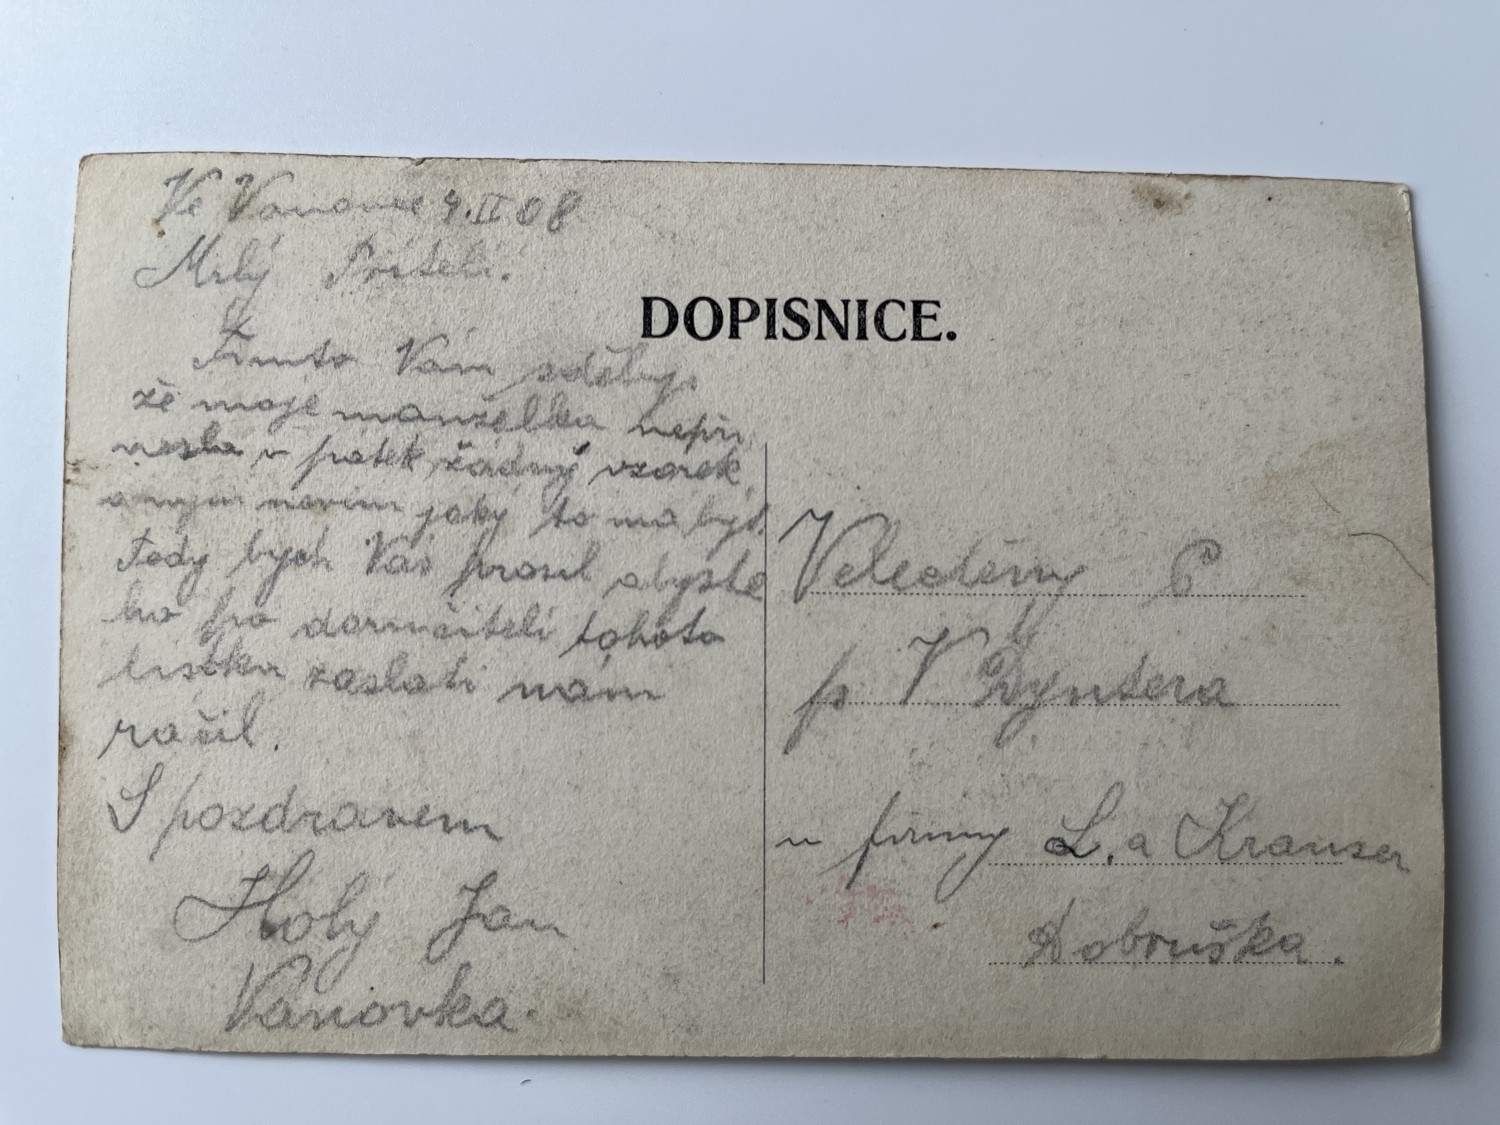 Ve Vanovce 4.II 08
Milý Příteli.
DOPISNICE.
Tímto Vám sděluji,
že moje manželka nepři
nesla v pátek žádný vzorek
a nyní nevím jaký to má být.
Tedy bych Vás prosil abyste
ho po doručiteli tohoto
lístku zaslati nám
ráčil.
S pozdravem
Holý Jan
Vanovka.
Velectěný P
p V Dyntera
u firmy L. a Krauser
Dobruška.